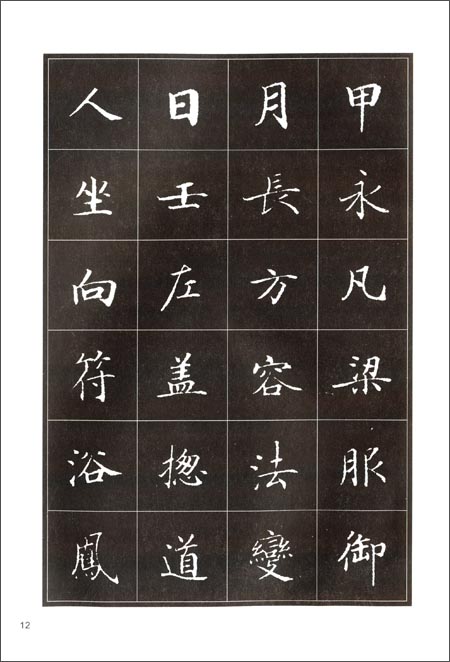 甲永凡梁服御
月長方容法變
日壬左盖揔道
人坐向符浴鳳
12